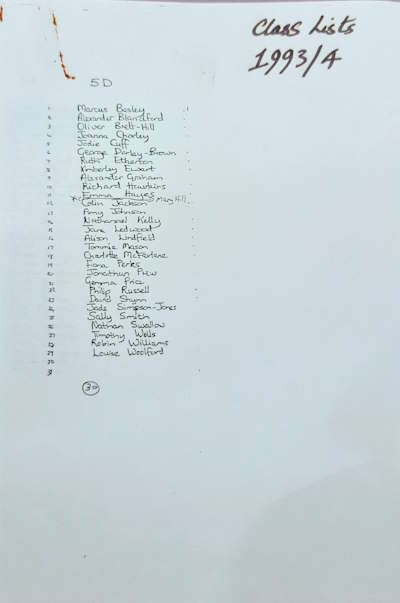 Class Lists
1993/4
5D
1 Marcus Bosley
2 Alexander Blandford
3 Oliver Brett-Hill
4 Joanna Chorley
5 Jodie Cuff
6 George Darley-Brown
7 Ruth Etherton
8 Kimberley Ewart
9 Alexander Graham
10 Richard Hawkins
11 Emma Hayes
12 Colin Jackson Mary Hill
13 Amy Johnson
14 Nathanael Kelly
15 Jane Ledwood
16 Alison Lindfield
17 Tommie Mason
18 Charlotte McFarlane
19 Fiona Perks
20 Jonathan Prew
21 Gemma Price
22 Philip Russell
23 David Shynn
24 Jade Simpson-Jones
25 Sally Smith
26 Nathan Swallow
27 Timothy Wells
28 Robin Williams
29 Louise Woolford
30
31
30